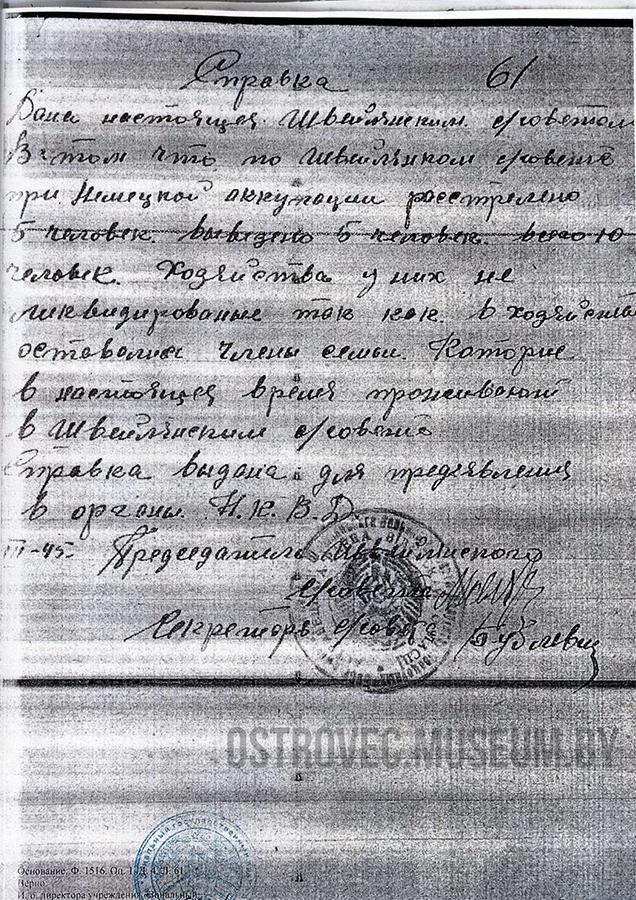 Справка 61
Дана настоящея Швейлянским с/советом
В том что по Швейлянском с/совете
при Немецкой аккупации расстрелено
5 человек. вывезено 5 человек. всего 10
человек. Хозяйства у них не
ликвидированые так как в хозяйства
оставалися члены семьи. Которые
в настоящея время проживают
в Швейлянским с/совете
Справка выдана для предявления
в органы Н.К.В.Д
III-45. Председатель Швейлянского
с/совета
Секреторь с/совета
OSTROVEC.MUSEUM.BY
Основание. Ф. 1516. Оп. 1. Д. 4. Л. 61
Верно:
И. о. директора учреждения «Зональный